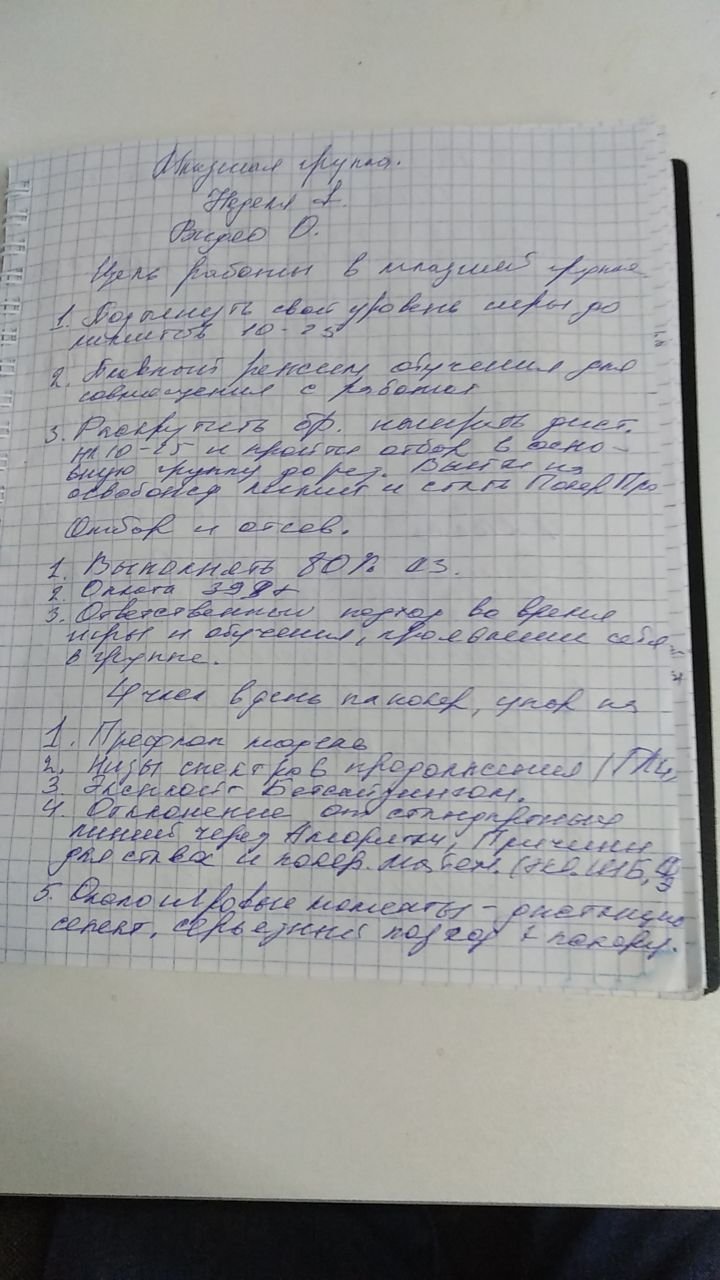 Младшая группа.
Неделя 1.
Видео 0.
Цель работы в младшей группе
1. Подтянуть свой уровень игры до
лимитов 10-25
2. Плавный режим обучения для
совмещения с работой
3. Раскрутить бр. наиграть дист.
нл 10-25 и пройти отбор в осно-
вную группу до рез. Выйти на
лимит и стать Покер Про
Отбор и отсев.
1. Выполнять 80% ДЗ.
2. Оплата
3. Ответственный подход во время
игры и обучения, проявлении себя
в группе.
4 часа в день на покер, упор на
1. Префлоп модель
2. Низы спектров продолжения
3. Эксплойт Бетсайзингом.
4. Отклонение от стандартных
линий через Алгоритм, Причины
для ставок и покер. матем.
5. Околоигровые моменты - дистанция
селект, серьезный подход к покеру.